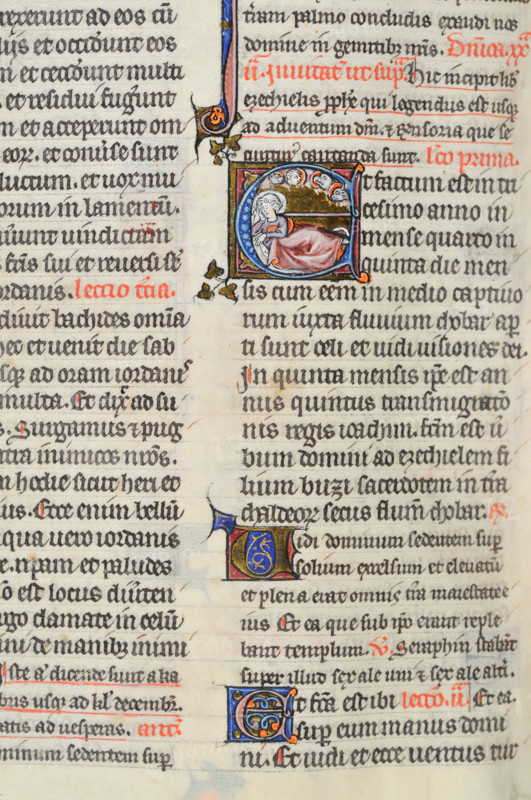 rexerunt ad eos cū
lijs et occidūt eos
et ceciderunt multi
et residui fugiunt
n et acceperunt om
eoꝝ. et conūse sunt
luctum. et uox mu
orum in lamentū.
uindictam
fr̄is sui et reuersi sꝉ
ordanis. lectio t̄cia.
diuit bachides om̄ia
hec et uenit die sab
usqꝫ ad oram iordanis
multa. Et dix̄ ad su
s. Surgamus ⁊ pug
tra inimicos nr̄os.
n hodie sicut heri et
ius. Ecce enim bellū
qua uero iordanis
e. ripam et paludes
n̄o est locus diūten
ergo clamate in celū
ini de manibꝫ inimi
Iste a͛ dicende sunt a ka
bris usqꝫ ad kl̄ decembr̄.
atis ad uesperas. ant̄
minum sedentem sup̄
t̄ram palmo concludis exaudi nos
domine in gemitibꝫ nr̄is. Dn̄ica. xx
ii. Inuitat̄ ut sup̄. Hic incipit lib̄
ezechielis ꝓph̄e qui legendus est usqꝫ
ad aduentum dn̄i. ⁊ R̄nsoria que se
cuntur cantanda sunt. l̄co prima.
Et factum est in tri
cesimo anno in
mense quarto in
quinta die men
sis cum eēm in medio captiuo
rum iuxta fluuium chobar ap̄
ti sunt celi et uidi uisiones dei.
In quinta mensis ip̄e est an
nus quintus transmigr̄atō
nis regis ioachim. fc̄m est ū
bum domini ad ezechielem fi
lium buzi sacerdotem in t̄ra
chaldeoꝝ secus flum̄ chobar. R̄.
Uidi dominum sedentem sup̄
solium excelsum et eleuatū
et plena erat omnis t̄ra maiestate e
ius Et ea que sub ip̄o erant reple
bant templum. V̄. Seraphin stabāt
super illud sex ale uni ⁊ sex ale alt̄i.
Et fc̄a est ibi lectō. ii. Et ea.
sup̄ eum manus domi
ni. Et uidi et ecce uentus tur